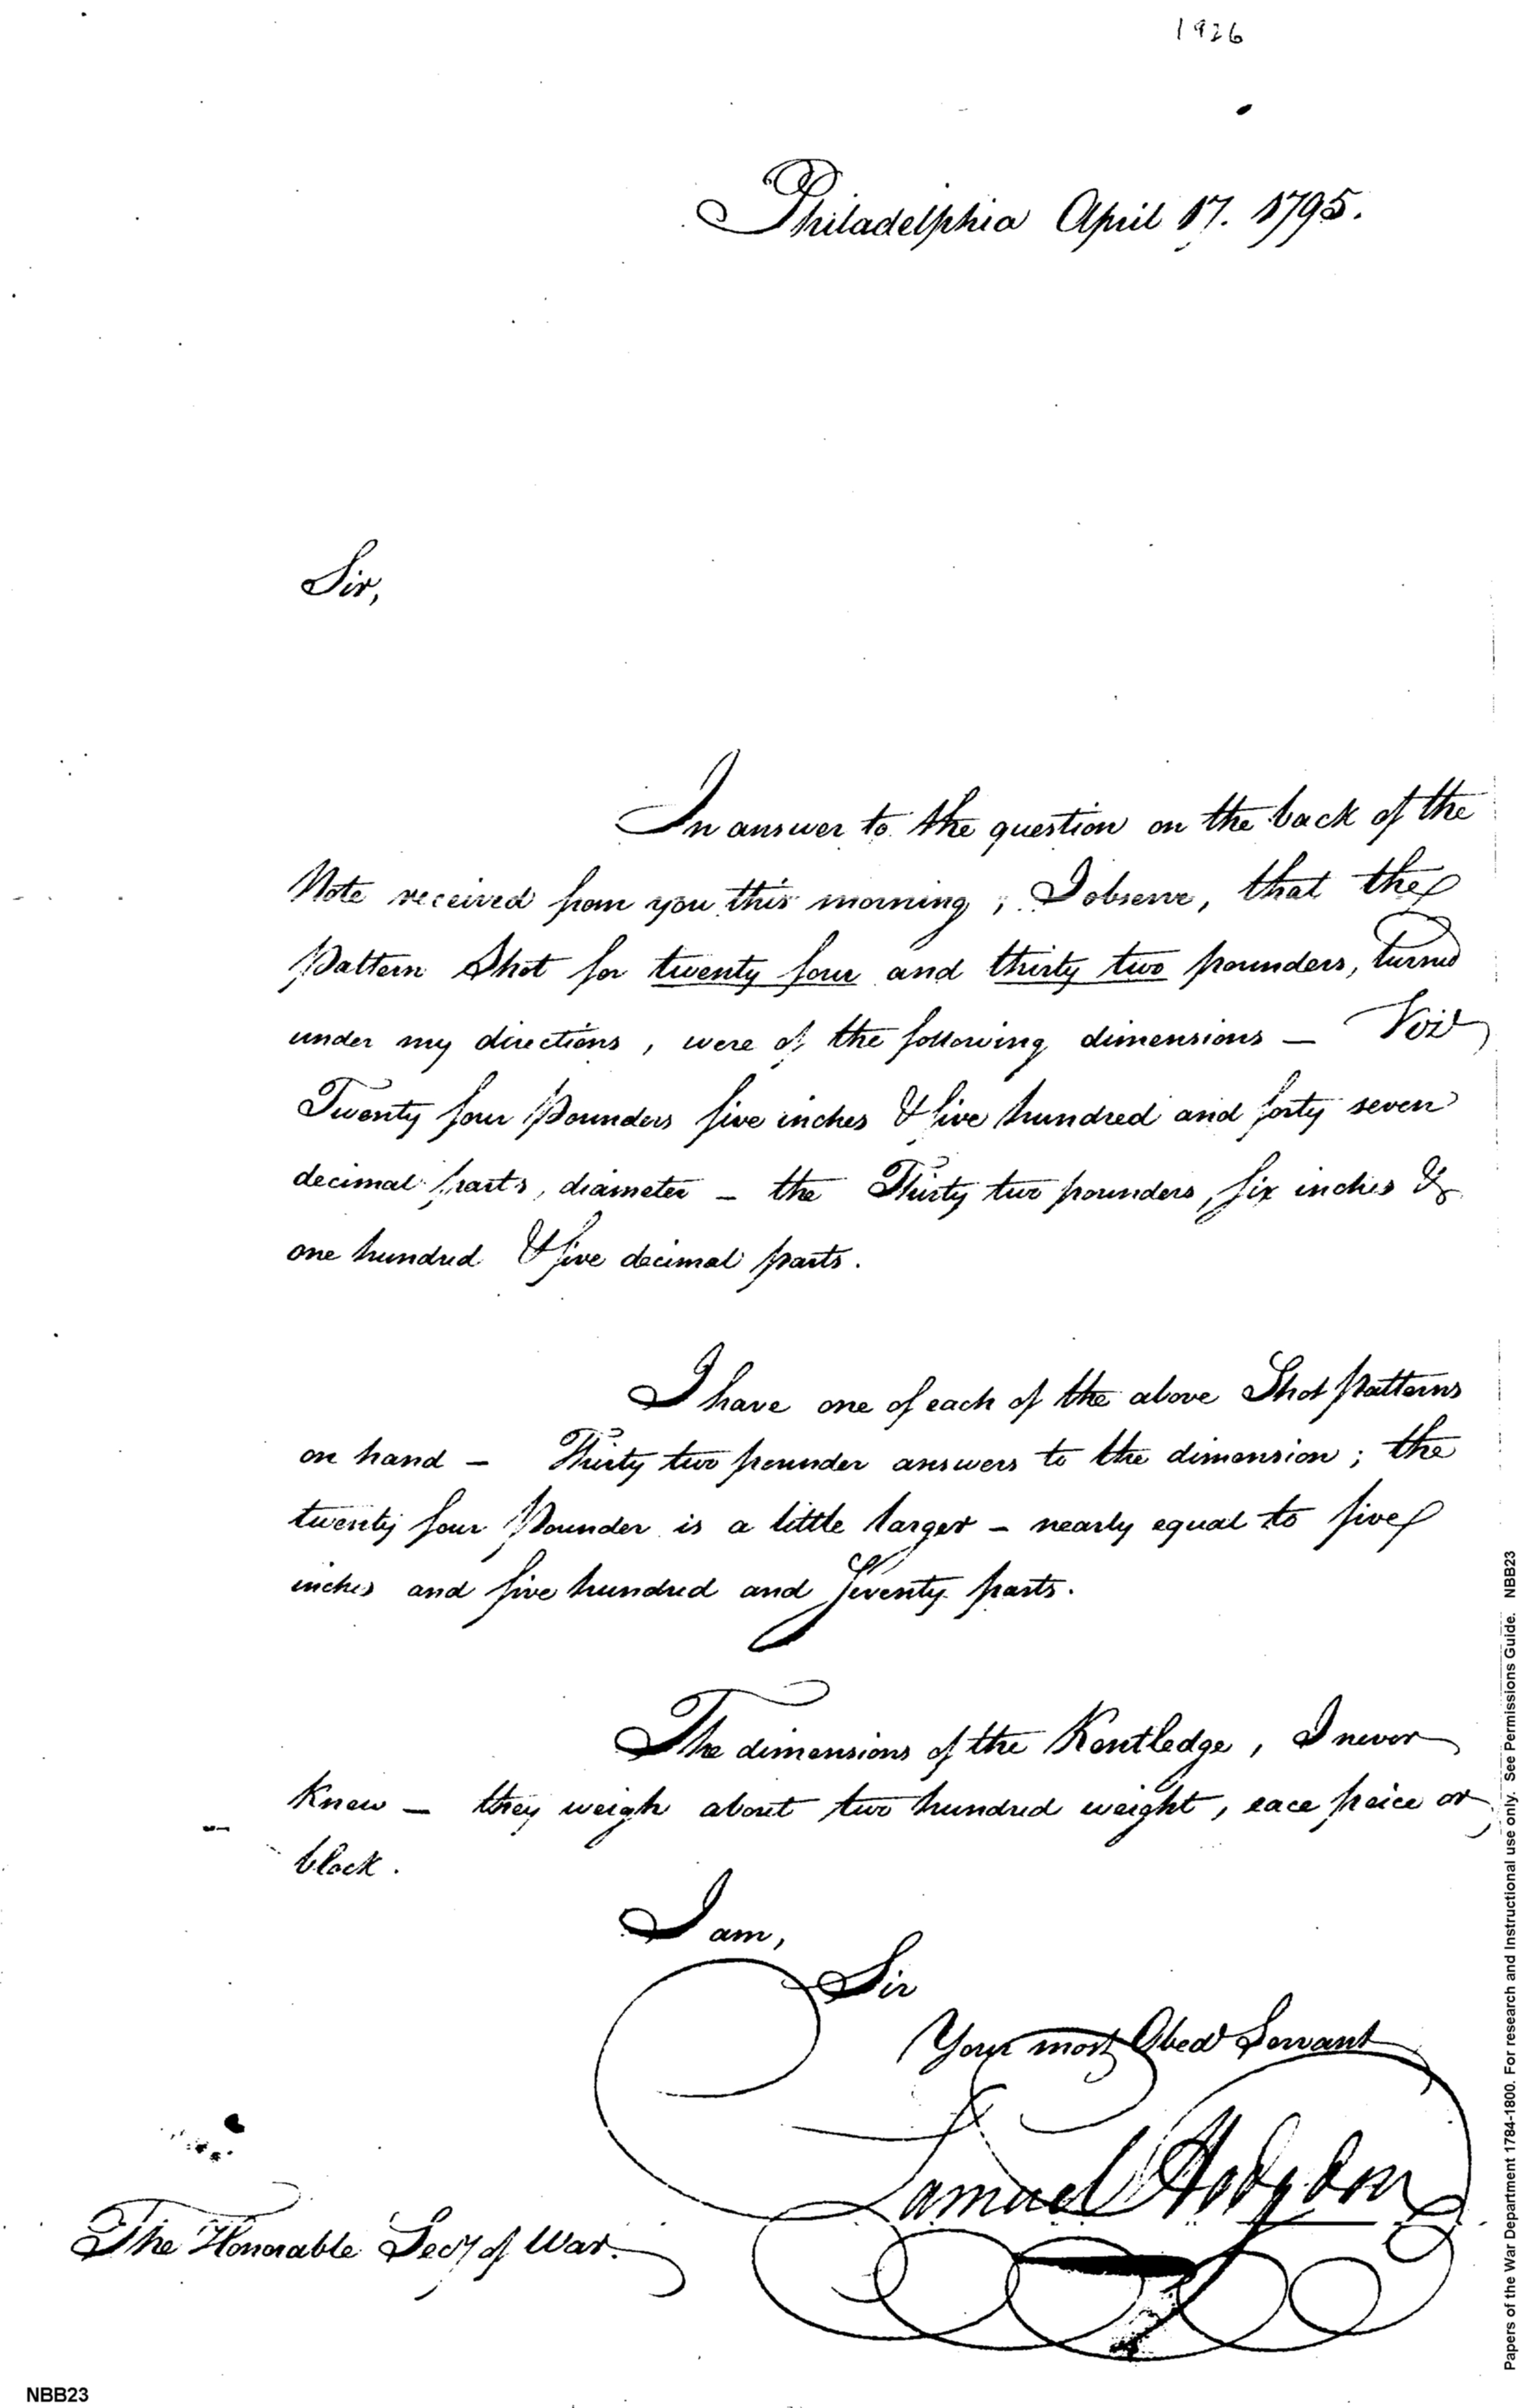 1926
Philadelphia April 17. 1795.
Sir,
In answer to the question on the back of the
Note received from you this morning; I observe, that the
Pattern Shot for twenty four and thirty two pounders, turned
under my directions, were of the following dimensions — Viz
Twenty four Pounders five inches & five hundred and forty seven
decimal parts, diameter – the Thirty two pounders, six inches &
one hundred & five decimal parts.
I have one of each of the above Shot patterns
on hand – Thirty two pounder answers to the dimension; the
twenty four Pounder is a little larger – nearly equal to five
inches and five hundred and Seventy parts.
The dimensions of the Kentledge, I never
knew — they weigh about two hundred weight, eace peice or
block.
I am,
Sir
Your most Obed Servant
Samuel Hodgdon
The Honorable Secy of War.
NBB23
Papers of the War Department 1784-1800. For research and Instructional use only. See Permissions Guide. NBB23